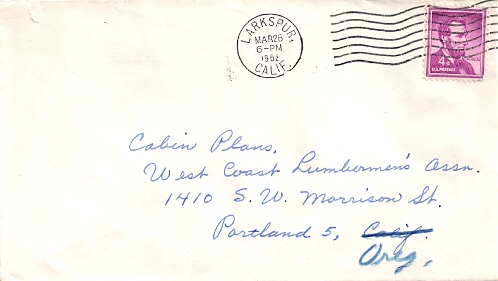 LARKSPUR,
MAR 26
6-PM
1962
CALIF.
4¢
U.S. POSTAGE
Cabin Plans,
West Coast Lumbermen's Assn.
1410 S. W. Morrison St.
Portland 5, Calif.
Oreg.